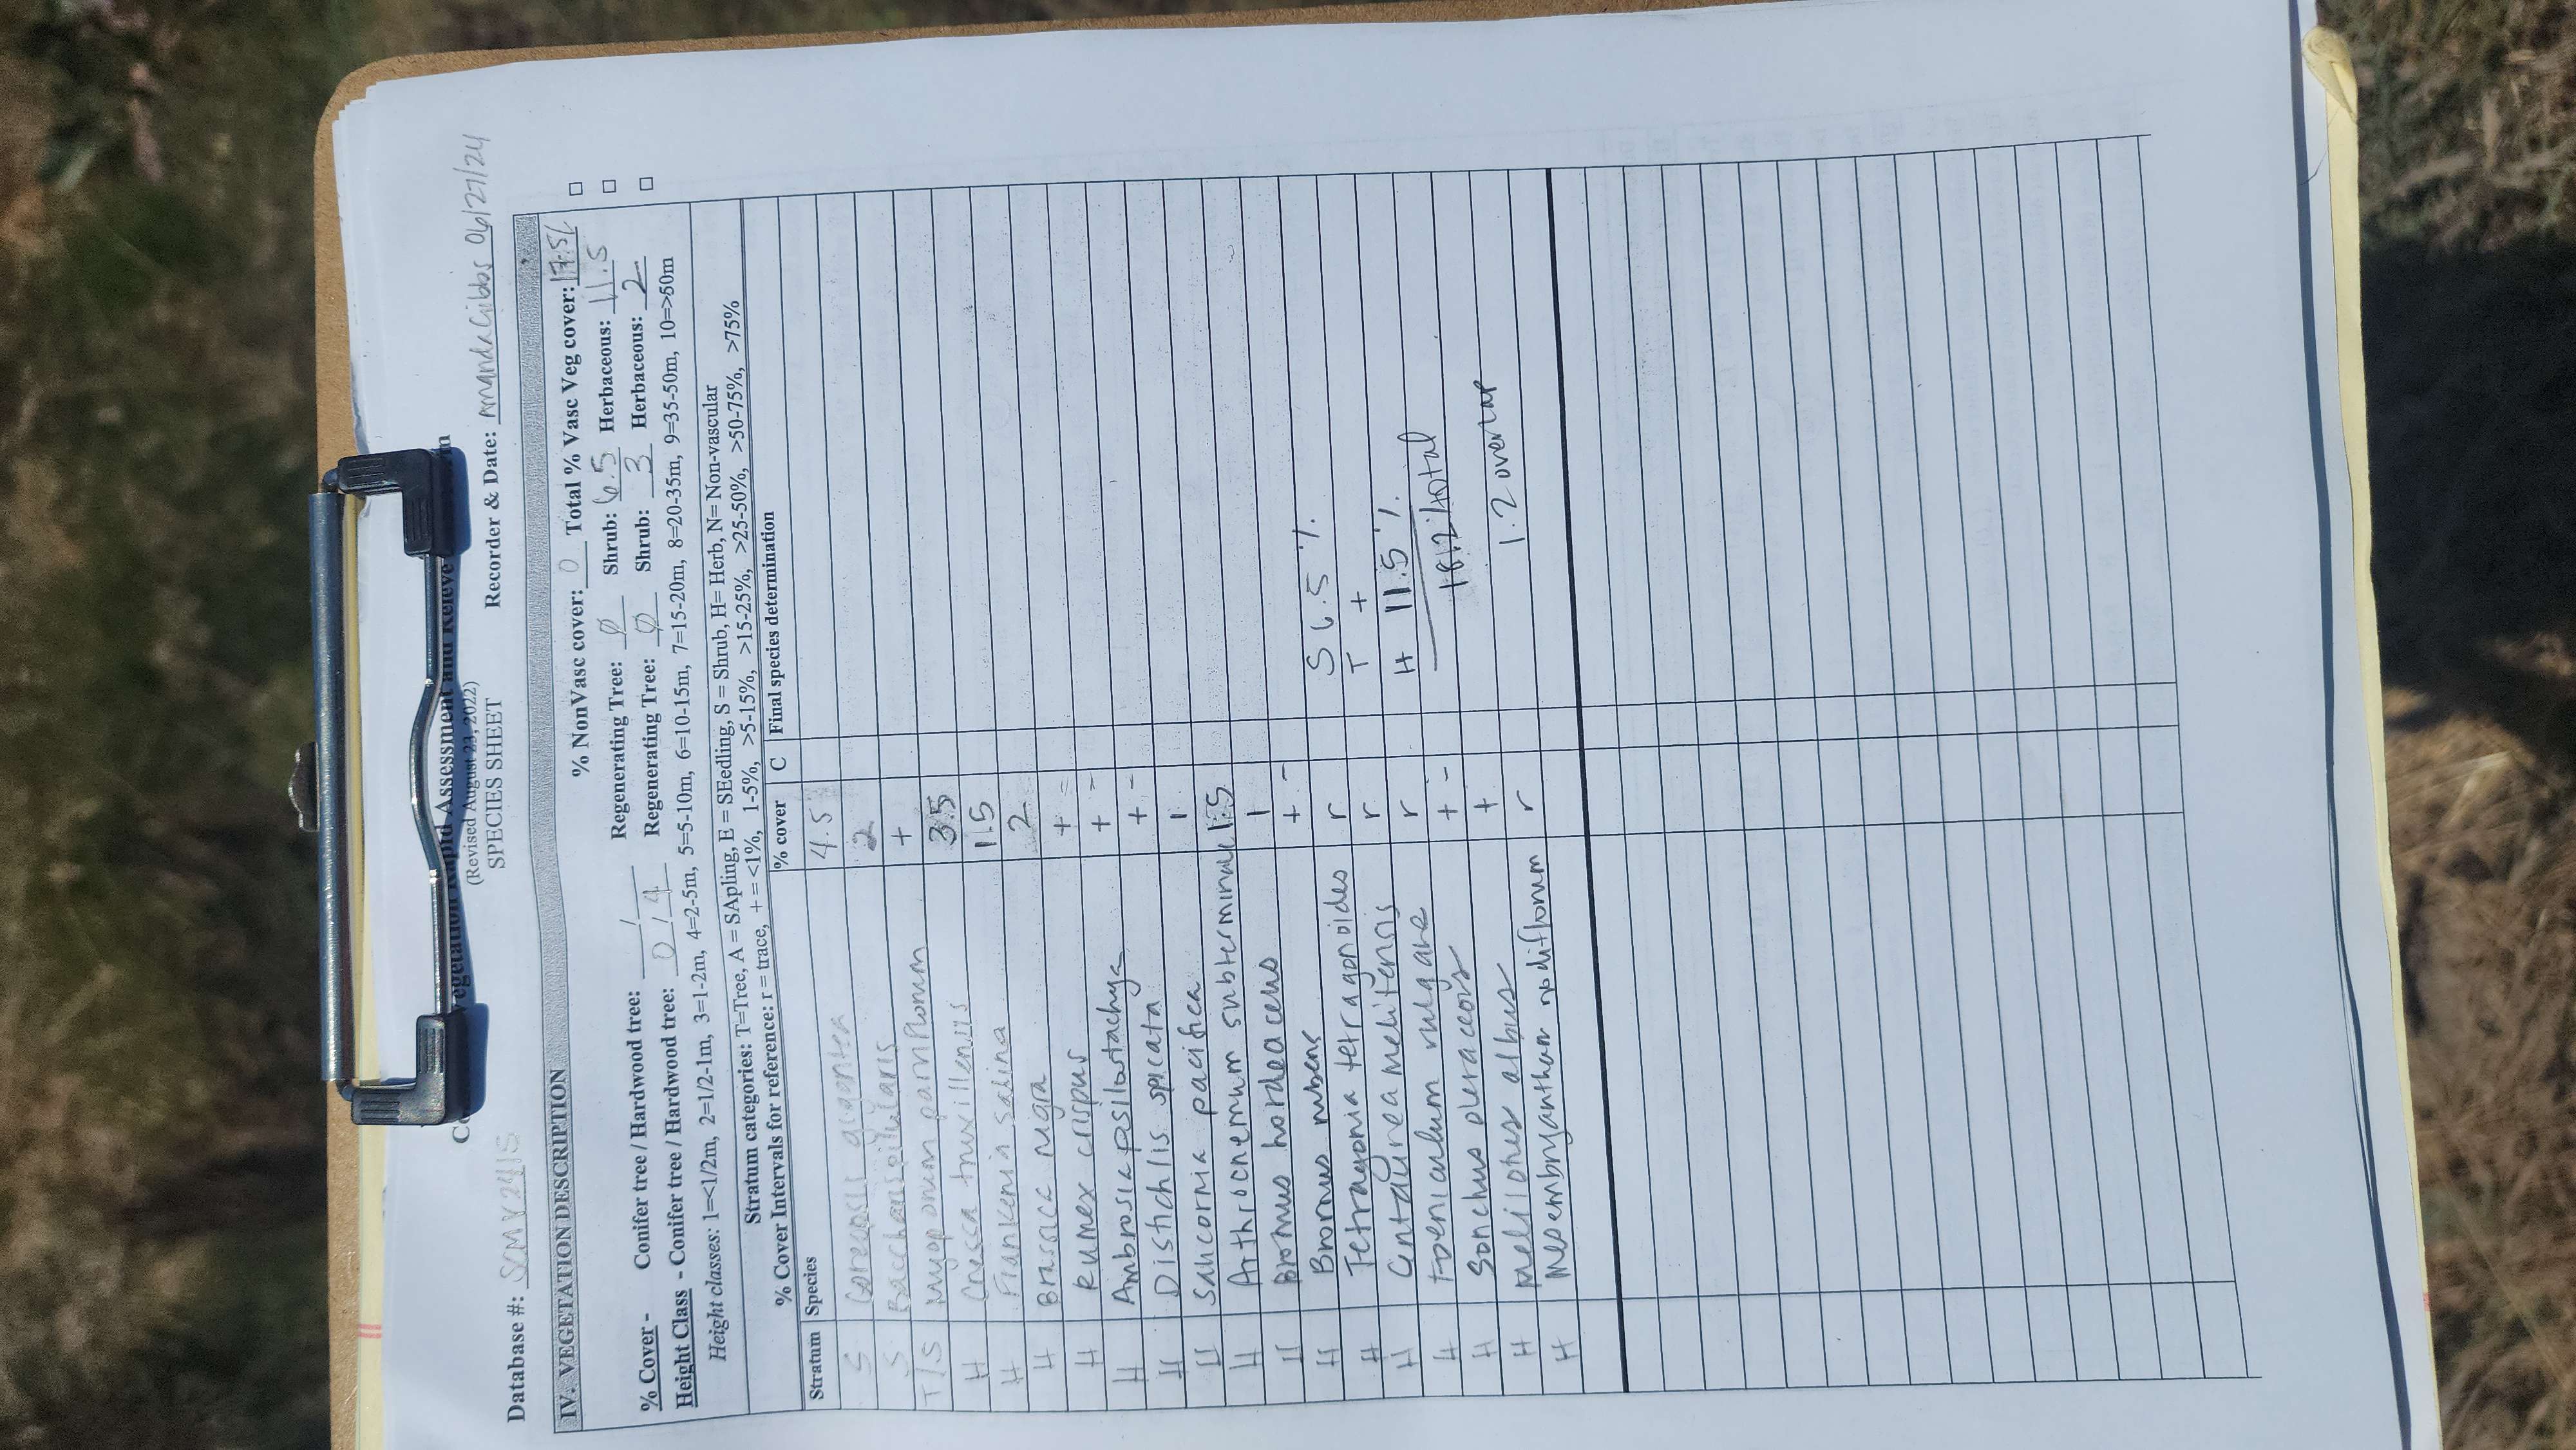 Vegetation Rapid Assessment and Relevé
(Revised August 23, 2022)
SPECIES SHEET
Database #: SCMV2415 Recorder & Date: Amanda Gibbs 06/27/24
IV. VEGETATION DESCRIPTION
% NonVasc cover: 0 Total % Vasc Veg cover: 17.5% □
% Cover - Conifer tree / Hardwood tree: / Regenerating Tree: Ø Shrub: 6.5 Herbaceous: 11.5 □
Height Class - Conifer tree / Hardwood tree: 0 / 4 Regenerating Tree: Ø Shrub: 3 Herbaceous: 2 □
Height classes: 1=<1/2m, 2=1/2-1m, 3=1-2m, 4=2-5m, 5=5-10m, 6=10-15m, 7=15-20m, 8=20-35m, 9=35-50m, 10=>50m
Stratum categories: T=Tree, A = SApling, E = SEedling, S = Shrub, H= Herb, N= Non-vascular
% Cover Intervals for reference: r = trace, + = <1%, 1-5%, >5-15%, >15-25%, >25-50%, >50-75%, >75%
Stratum Species % cover C Final species determination
S Coreopsis gigantea 4.5
S Baccharis pilularis 2
T/S Myoporum parviflorum +
H Cressa truxillensis 3.5
H Frankenia salina 1.5
H Brassica nigra 2
H Rumex crispus +
H Ambrosia psilostachya + -
H Distichlis spicata + -
H Salicornia pacifica 1
H Arthrocnemum subterminale 1.5
H Bromus hordeaceus 1
H Bromus rubens + -
H Tetragonia tetragonoides r S 6.5 %
H Centaurea melitensis r T +
H Foeniculum vulgare r H 11.5 %
H Sonchus oleraceus + - total
H Melilotus albus +
H Mesembryanthum nodiflorum r 1.2 overlap